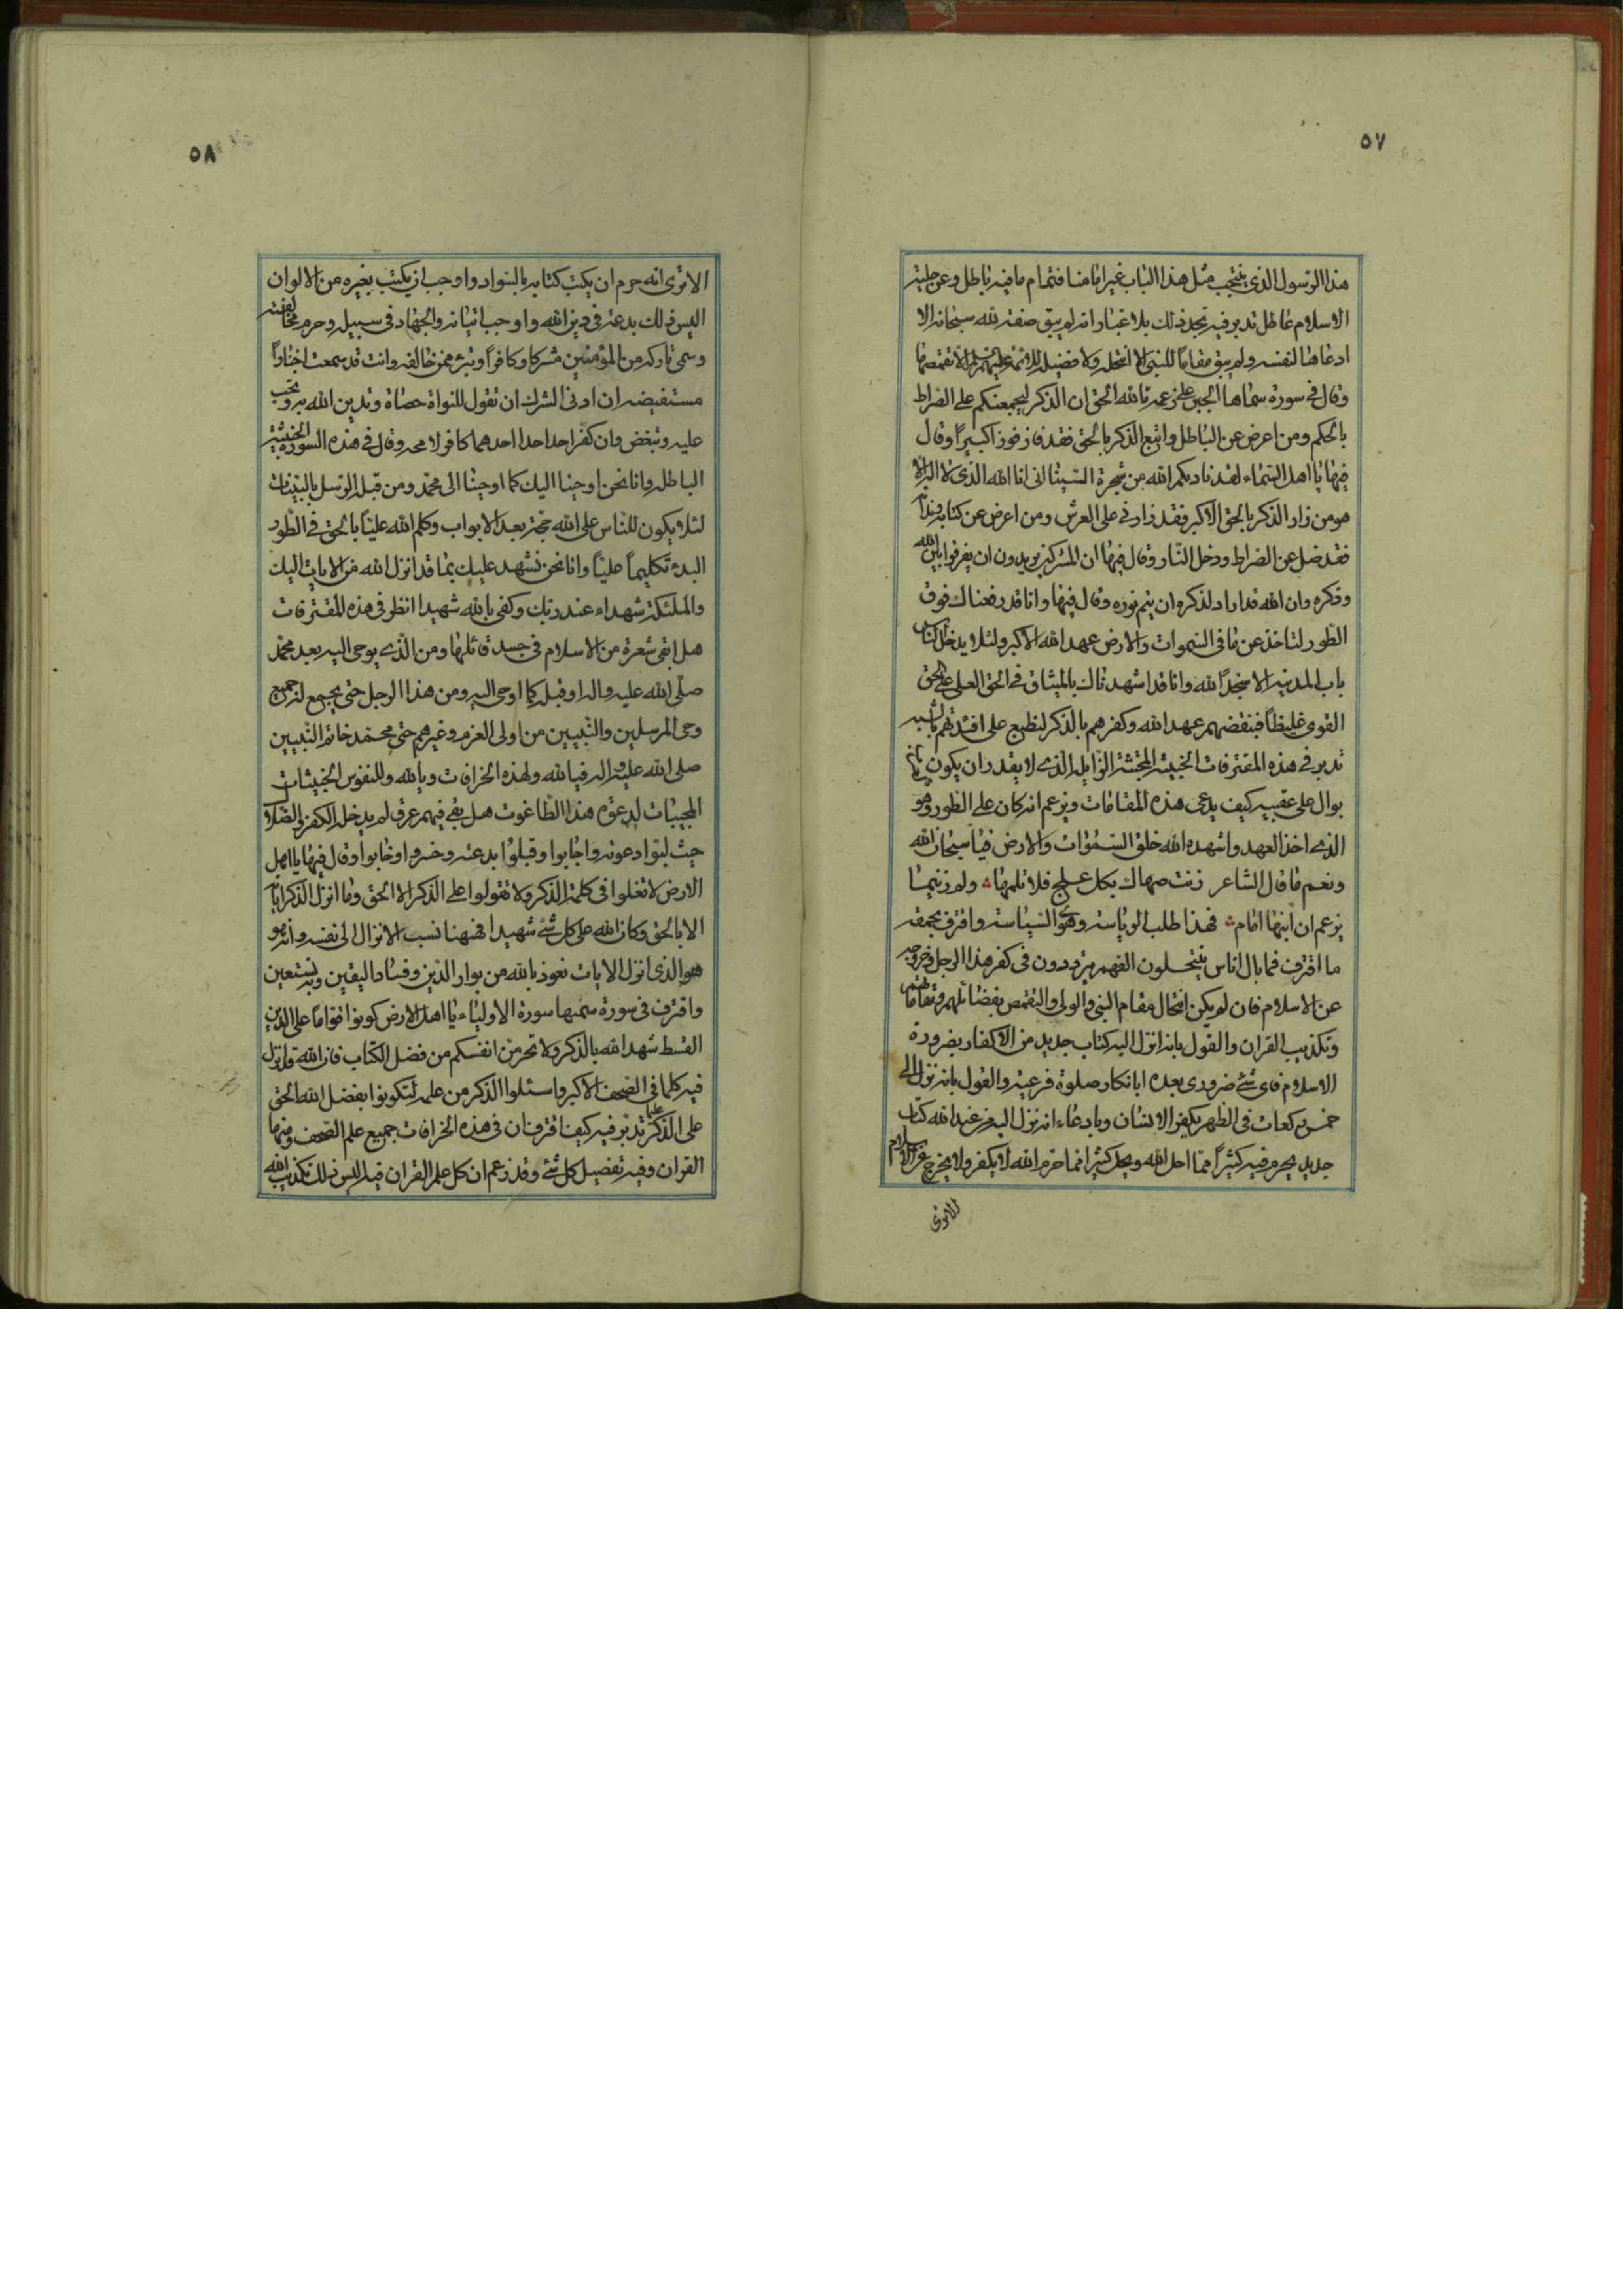 ٥٧
هذا الرسول الذى ينتجب مثل هذا الباب غير امامنا فتمام ما فيه باطل وعن حلية
الاسلام عاطل تدبر فيه تجد ذلك بلا غبار انه لم يبق صفة لله سبحانه الا
ادعاها لنفسه ولم يبق مقاما للنبى الا انتحله ولا فضيلة للائمة عليهم السلام الا تقمصها
وقال فى سورة سماها الجبن على زعمه تالله الحق ان الذكر ليجمعنكم على الصراط
بالحكم ومن اعرض عن الباطل واتبع الذكر بالحق فقد فاز فوزا كبيرا وقال
فيها يا اهل السماء لقد نادىكم الله من شجرة السيناء انى انا الله الذى لا اله الا
هو من زار الذكر بالحق الاكبر فقد زارنى على العرش ومن اعرض عن كتابه
فقد ضل عن الصراط ودخل النار وقال فيها ان المشركين يريدون ان يفرقوا بين الله
وذكره وان الله قد اراد لذكره ان يتم نوره وقال فيها وانا قد رفعناك فوق
الطور لتاخذ عن ما فى السموات والارض عهد الله الاكبر ولئلا يدخل الناس
باب المدينة الا سجدا لله وانا قد اشهدناك بالميثاق فى الحق العلى على الحق
القوى غليظا فبنقضهم عهد الله وكفرهم بالذكر لنطبع على افئدتهم
تدبر فى هذه المقترفات الخبيثة المجتثة الزايلة الذى لا يقدر ان يكون
بوال على عقبيه كيف يدعى هذه المقامات ويزعم انه كان على الطور وهو
الذى اخذ العهد واشهده الله خلق السموات والارض فيا سبحان الله
ونعم ما قال الشاعر زنت صهاك بكل علج فلا تلمها ولم زنيما
يزعم ان ابنها امام فهذا طلب الرياسة وهوى السياسة واقترف بحمقه
ما اقترف فما بال اناس ينتحلون الفهم يترددون فى كفر هذا الرجل وخروجه
عن الاسلام فان لم يكن انتحال مقام النبى والولى والتقمص بفضائلهم ومقاماتهم
وتكذيب القران والقول بانه انزل اليه كتاب جديد من الاكفار بضرورة
الاسلام فاى شئ ضرورى بعده ابانكار صلوة فرعية والقول بانه نزل الى
خمس ركعات فى الظهر يكفر الانسان وبادعاء انه نزل اليه من عند الله كتاب
جديد يحرم فيه كثيرا مما احل الله ويحل كثيرا مما حرم الله لا يكفر ولا يخرج عن الاسلام
الاترى
٥٨
الاترى انه حرم ان يكتب كتابه بالسواد واوجب ان يكتب بغيره من الالوان
اليس ذلك بدعة فى دين الله واوجب اتيانه والجهاد فى سبيله وحرم مخالفته
وسمى تاركه من المؤمنين مشركا وكافرا وتبرء ممن خالفه وانت قد سمعت اخبارا
مستفيضة ان ادنى الشرك ان تقول للنواة حصاة وتدين الله به وتحب
عليه وتبغض وان كفر احد احدا احدهما كافر لا محه وقال فى هذه السورة الخبيثة
الباطلة وانا نحن اوحينا اليك كما اوحينا الى محمد ومن قبله الرسل بالبينات
لئلا يكون للناس على الله حجة بعد الابواب وكلم الله عليا بالحق فى الطور
البدء تكليما عليا وانا نحن نشهد عليك بما قد انزل الله من الايات اليك
والملئكة شهداء عند ربك وكفى بالله شهيدا انظر فى هذه المقترفات
هل ابقى شعرة من الاسلام فى جسد قائلها ومن الذى يوحى اليه بعد محمد
صلى الله عليه واله او قبله كما اوحى اليه ومن هذا الرجل حتى يجمع له جميع
وحى المرسلين والنبيين من اولى العزم وغيرهم حتى محمد خاتم النبيين
صلى الله عليه واله فيالله ولهذه الخرافات ويالله وللنفوس الخبيثات
المجيبات لدعوة هذا الطاغوت هل بقى فيهم عرق لم يدخله الكفر والضلال
حيث لبوا دعوته واجابوا وقبلوا بدعته وخسروا وخابوا وقال فيها يا اهل
الارض لا تغلوا فى كلمة الذكر ولا تقولوا على الذكر الا الحق وما انزل الذكر اياته
الا بالحق وكان الله على كل شئ شهيدا فههنا نسب الانزال الى نفسه وانه هو
هو الذى انزل الايات نعوذ بالله من بوار الدين وفساد اليقين وبه نستعين
واقترف فى سورة سميها سورة الاولياء يا اهل الارض كونوا قواما على الدين
القسط شهد الله بالذكر ولا تحرمن انفسكم من فضل الكتاب فان الله قد انزل
فيه كلما فى الصحف الاكبر واسئلوا الذكر من علمه لتكونوا بفضل الله الحق
على الذكر عليما تدبر فيه كيف اقترف ان فى هذه الخرافات جميع علم الصحف ومنها
القران وفيه تفصيل كل شئ وقد زعم ان كل علم القران فيه اليس ذلك تكذيب الله